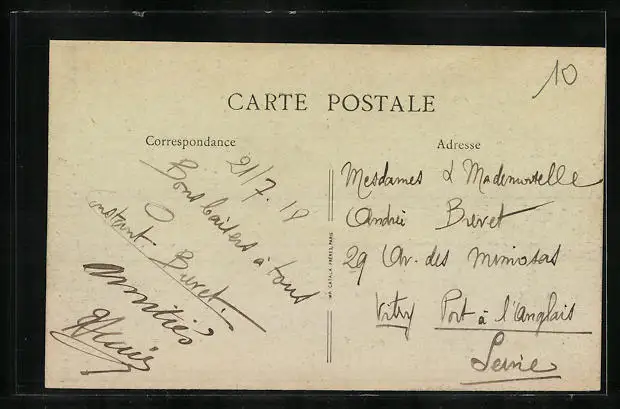 10
CARTE POSTALE
Correspondance
21/7.18
Bons baisers à tous
instant. Buret.
Amitiés
Adresse
Mesdames & Mademoiselle
Andrée Buret
29 Av. des mimosas
Vitry Port à l'Anglais
Seine
IMP. CATALA FRÈRES, PARIS